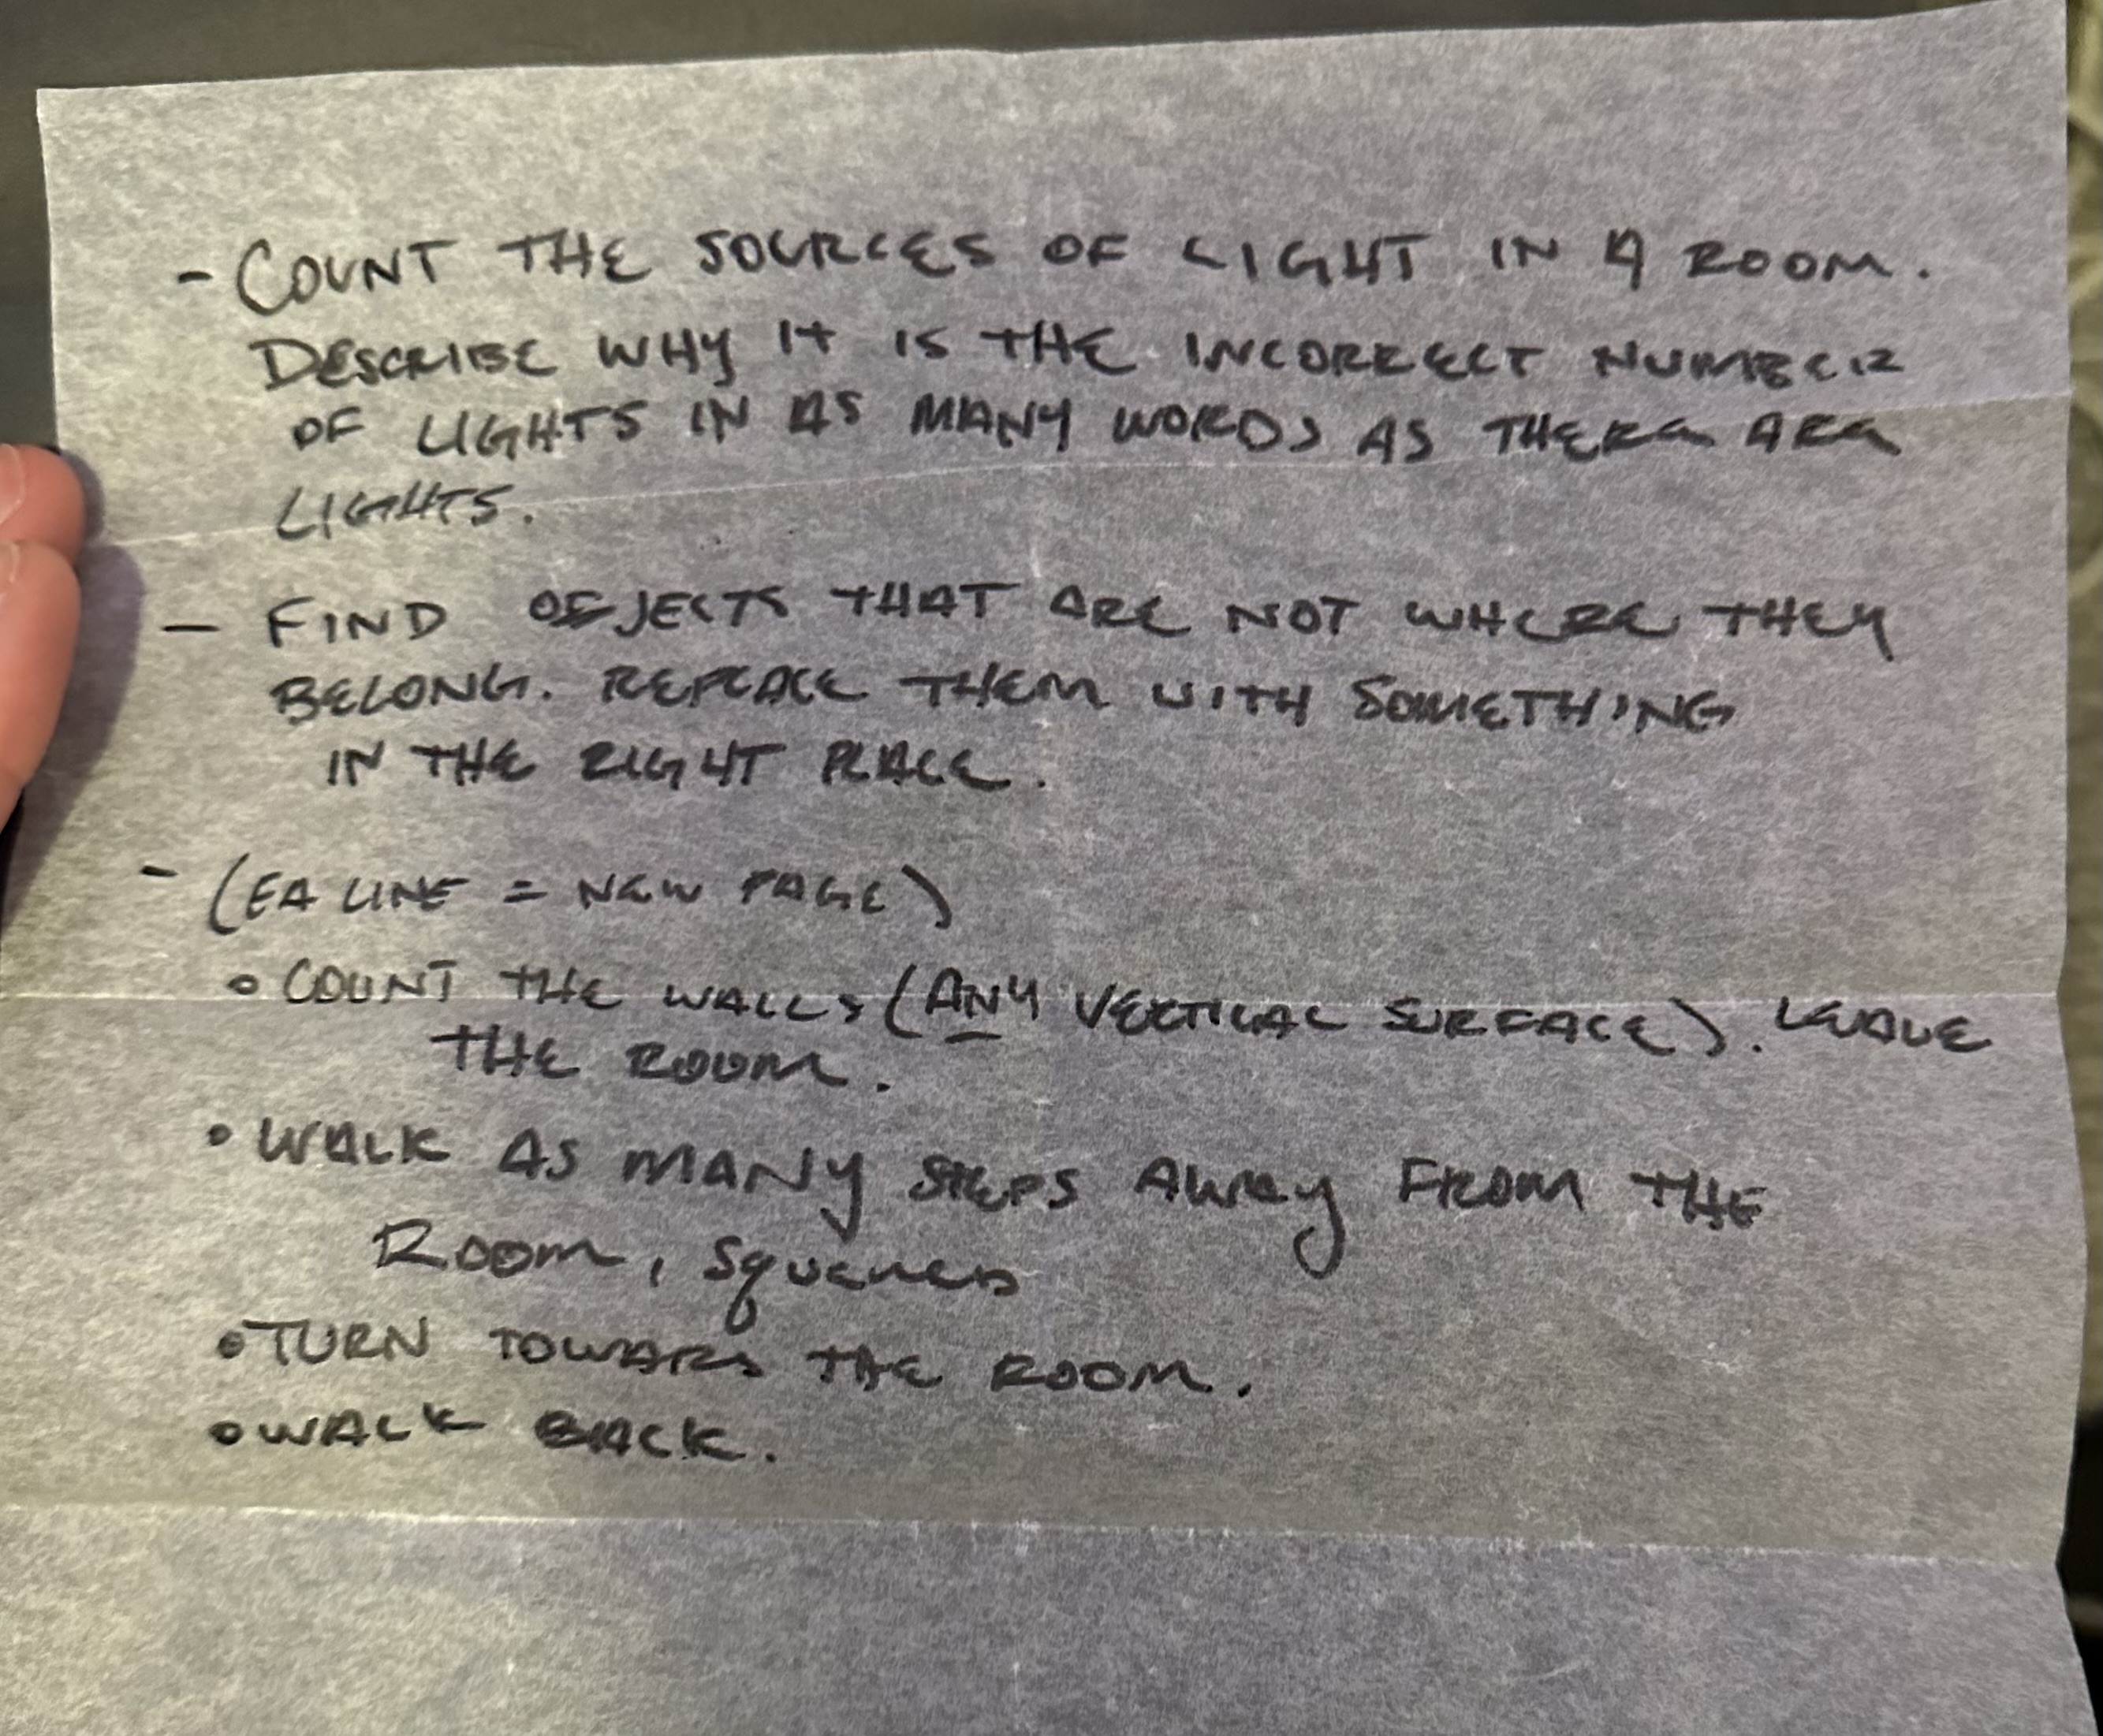 - COUNT THE SOURCES OF LIGHT IN A ROOM.
DESCRIBE WHY IT IS THE INCORRECT NUMBER
OF LIGHTS IN AS MANY WORDS AS THERE ARE
LIGHTS.
- FIND OBJECTS THAT ARE NOT WHERE THEY
BELONG. REPLACE THEM WITH SOMETHING
IN THE RIGHT PLACE.
- (EA LINE = NEW PAGE)
• COUNT THE WALLS (ANY VERTICAL SURFACE). LEAVE
THE ROOM.
• WALK AS MANY STEPS AWAY FROM THE
ROOM, SQUARED
• TURN TOWARDS THE ROOM.
• WALK BACK.